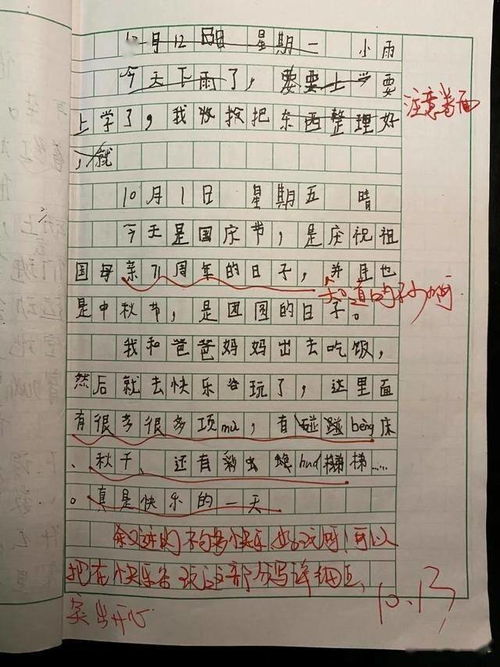 10月12日 星期一 小雨
今天下雨了，要要上学要
上学了，我收拾把东西整理好
，就
注意卷面
10月1日 星期五 晴
今天是国庆节，是庆祝祖
国母亲71周年的日子，并且也
是中秋节，是团圆的日子。
知道的不少啊
我和爸爸妈妈出去吃饭，
然后就去快乐谷玩了，这里面
有很多很多项mù，有碰蹦bèng床
、秋千、还有huá梯……
。真是快乐的一天
可以
把在快乐谷玩这部分写详细点
突出开心
10.13